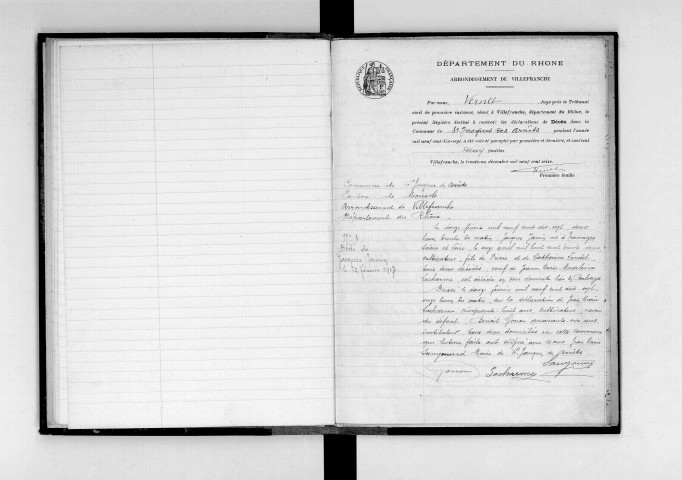 DÉPARTEMENT DU RHONE
ARRONDISSEMENT DE VILLEFRANCHE
Par nous, Juge près le Tribunal
civil de première instance, séant à Villefranche, département du Rhône, le
présent Registre destiné à recevoir les déclarations de Décès dans la
Commune de St Jacques des Arrêts pendant l'année
mil neuf cent dix-sept, a été coté et paraphé par première et dernière, et contient
deux feuilles.
Villefranche, le treize décembre mil neuf cent seize.
Première feuille
Commune de St Jacques des Arrêts
Canton de Monsols
Arrondissement de Villefranche
Département du Rhône.
N° 1
Décès de
Jacques
le 12 février 1917
Le douze février mil neuf cent dix sept, deux
heures trente du matin, Jacques né à
Saône et Loire, le onze avril mil huit cent trente
cultivateur, fils de et de Catherine
tous deux décédés, veuf de Jeanne Marie Madeleine
Lacharme est décédé en son domicile
Dressé le douze février mil neuf cent dix sept,
onze heures du matin, sur la déclaration de Jean Marie
Lacharme cinquante huit ans, cultivateur, neveu
du défunt, Benoit Gonon quarante six ans
instituteur, tous deux domiciliés en cette commune
qui lecture faite ont signé avec nous Jean Marie
Maire de St Jacques des Arrêts
Gonon Lacharme